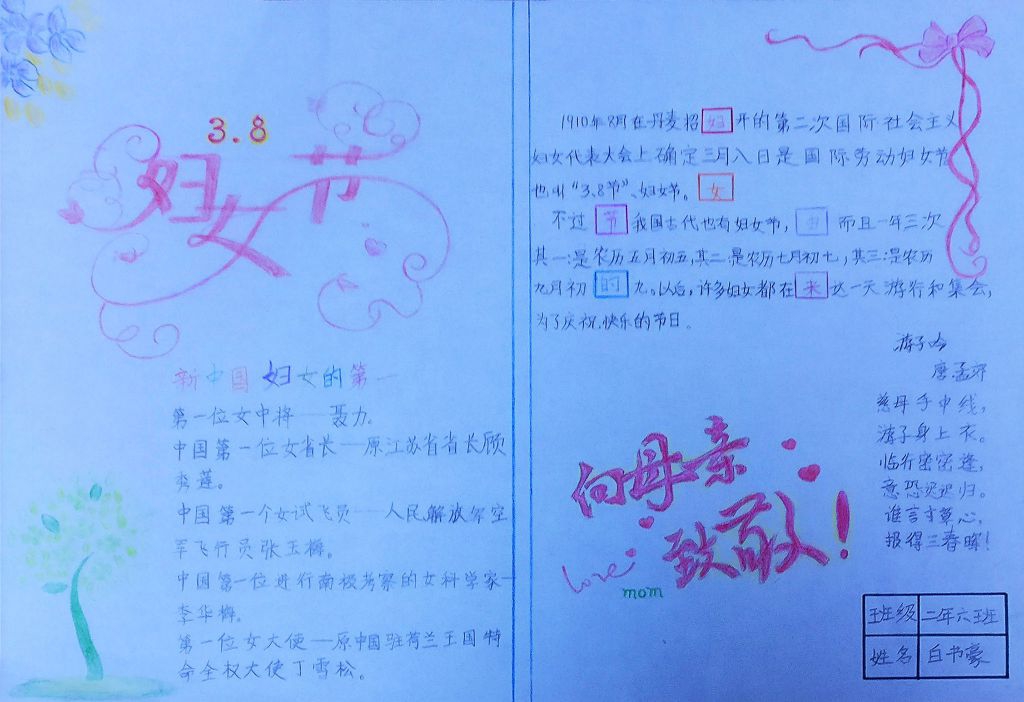 3.8
妇女节
新中国妇女的第一
第一位女中将——聂力。
中国第一位女省长——原江苏省省长顾
秀莲。
中国第一个女试飞员——人民解放军空
军飞行员张玉梅。
中国第一位进行南极考察的女科学家——
李华梅。
第一位女大使——原中国驻荷兰王国特
命全权大使丁雪松。
1910年8月在丹麦招妇开的第二次国际社会主义
妇女代表大会上确定三月八日是国际劳动妇女节
也叫“3.8节”、妇女节。女
不过节我国古代也有妇女节，由而且一年三次
其一:是农历五月初五,其二:是农历七月初七,其三:是农历
九月初的九。以后,许多妇女都在来这一天游行和集会,
为了庆祝.快乐的节日。
游子吟
唐.孟郊
慈母手中线,
游子身上衣。
临行密密逢,
意恐迟迟归。
谁言寸草心,
报得三春晖!
向母亲
致敬!
love
mom
班级 二年六班
姓名 白书豪